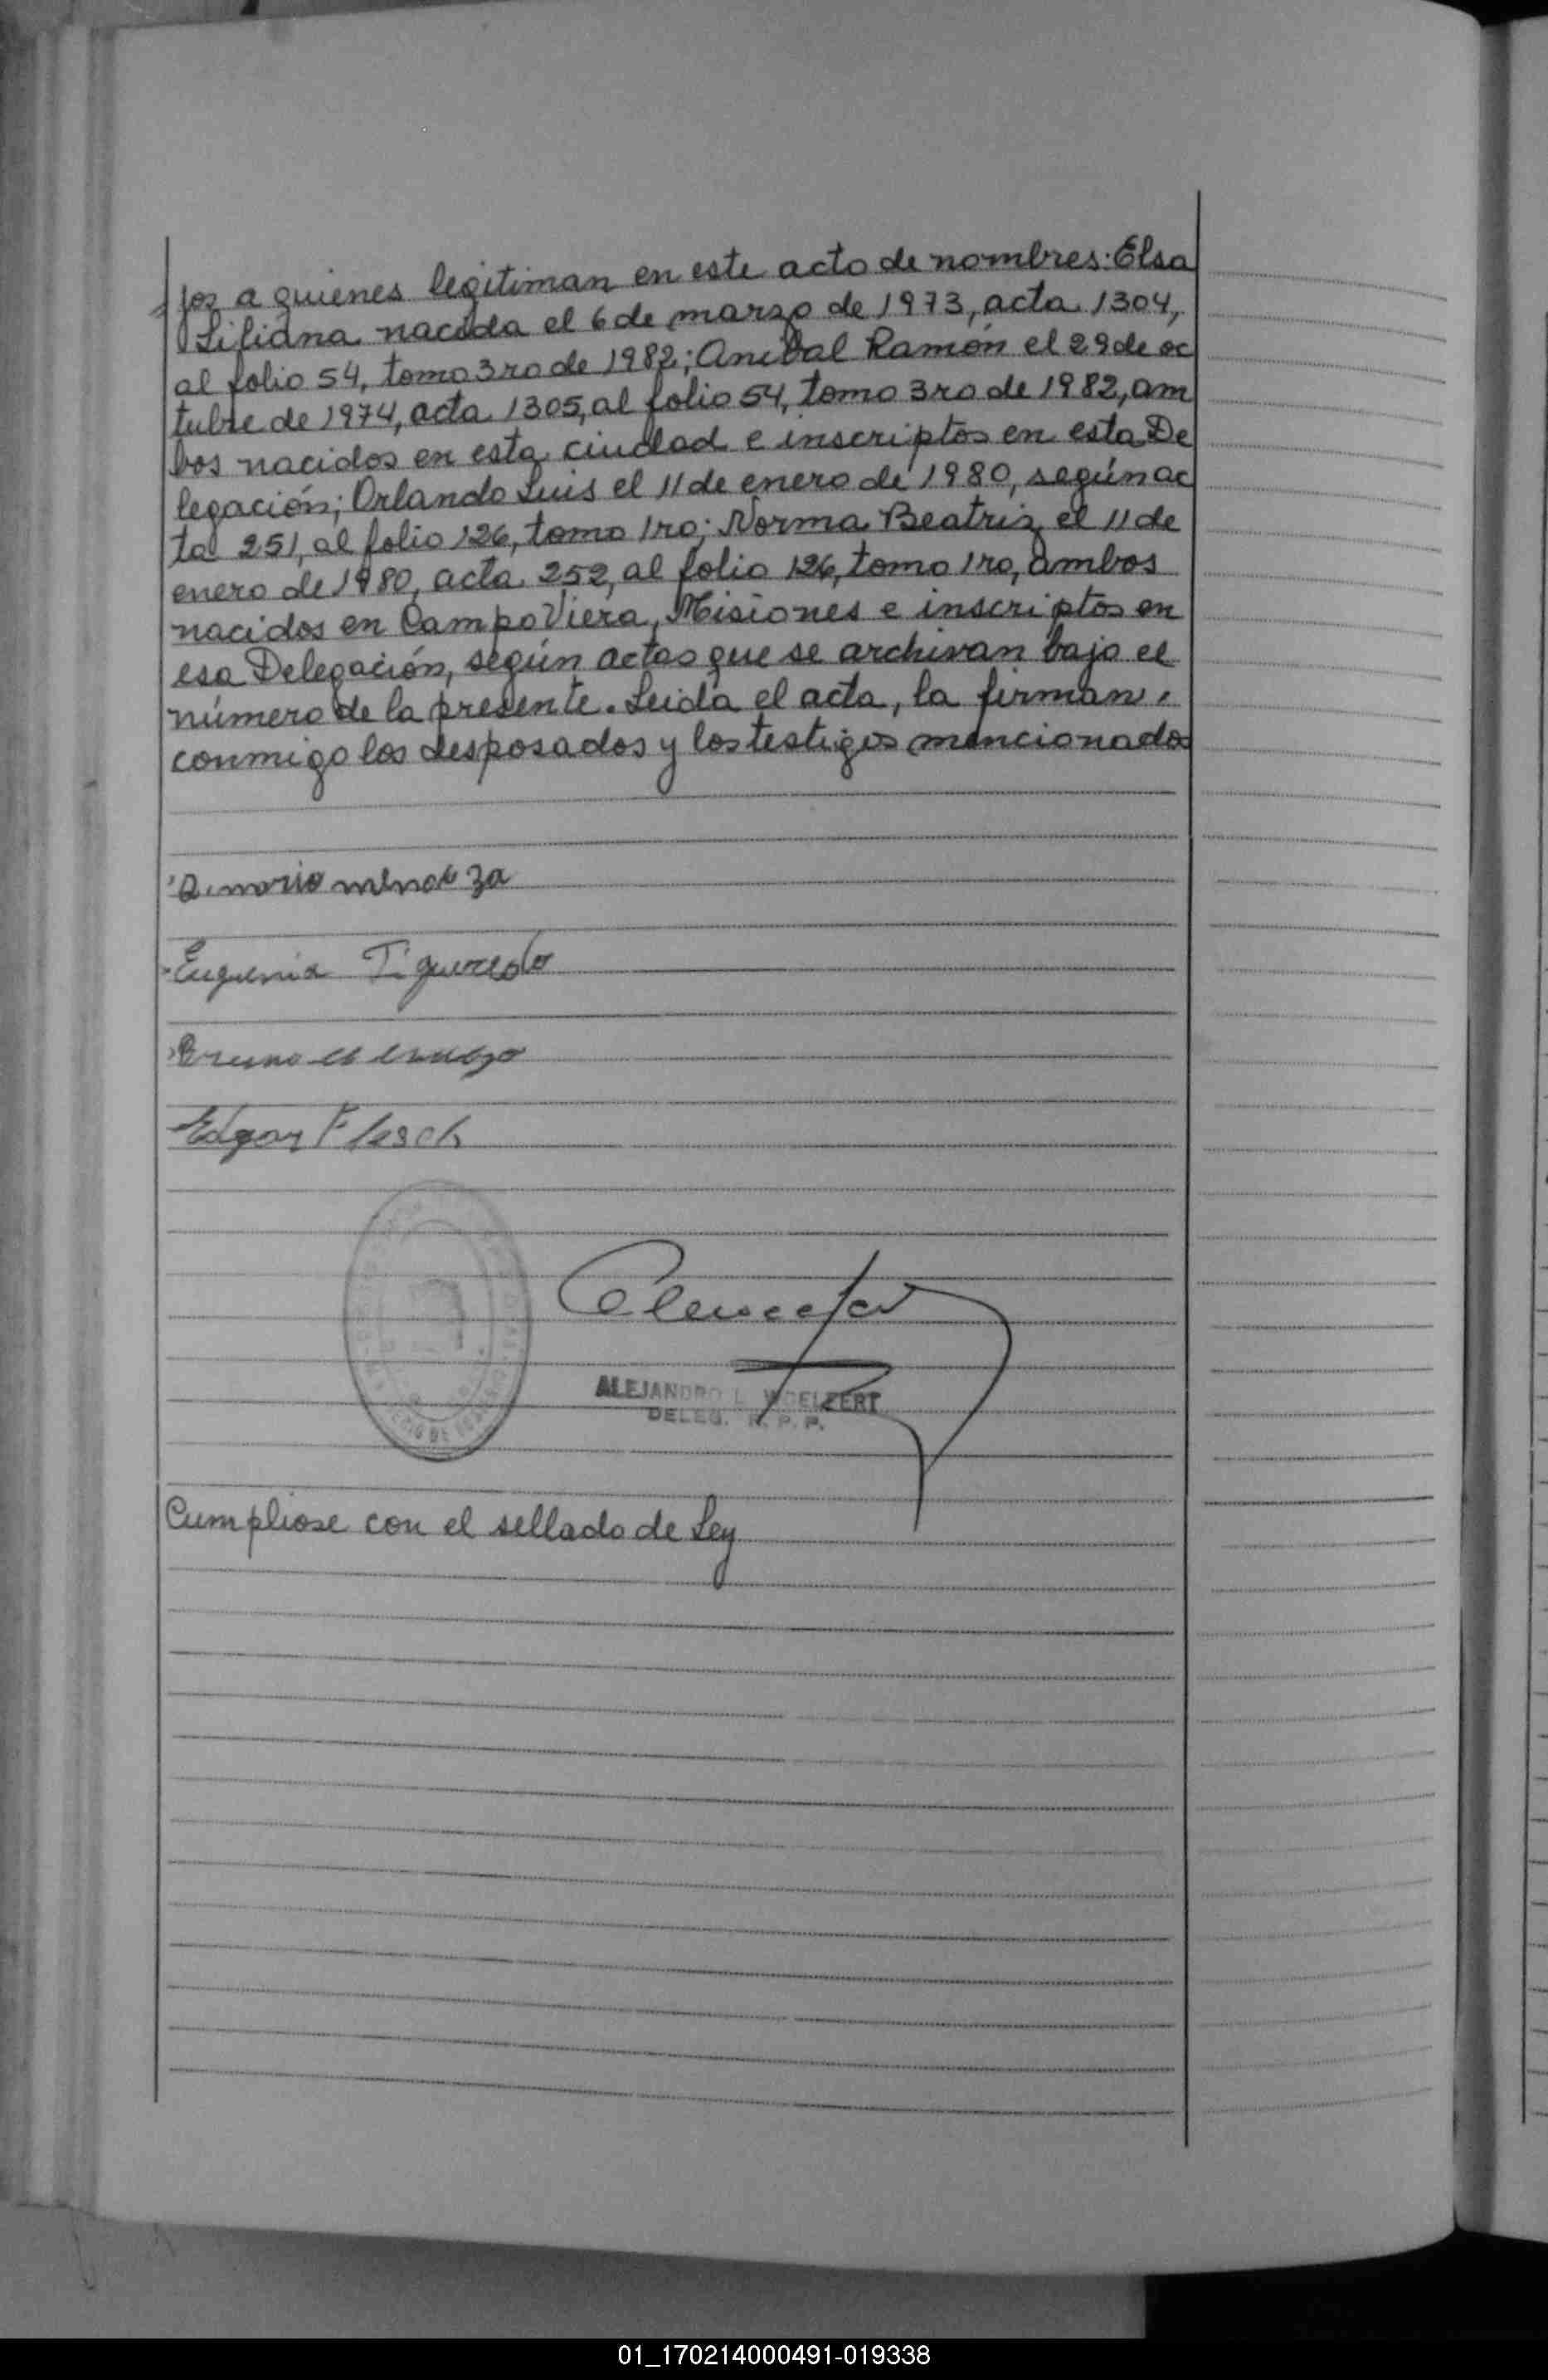 jos a quienes legitiman en este acto de nombres: Elsa
Liliana nacida el 6 de marzo de 1973, acta 1304,
al folio 54, tomo 3ro de 1982; Anibal Ramón el 29 de oc
tubre de 1974, acta 1305, al folio 54, tomo 3ro de 1982, am
bos nacidos en esta ciudad e inscriptos en esta De
legación; Orlando Luis el 11 de enero de 1980, según ac
ta 251, al folio 126, tomo 1ro; Norma Beatriz el 11 de
enero de 1980, acta 252, al folio 126, tomo 1ro, ambos
nacidos en Campo Viera, Misiones e inscriptos en
esa Delegación, según actas que se archivan bajo el
número de la presente. Leida el acta, la firman
conmigo los desposados y los testigos mencionados
Eugenia Figueredo
Bruno
Edgar Flesch
ALEJANDRO L. WOELFERT
DELEG. R. P. P.
Cumpliose con el sellado de Ley
01_170214000491-019338